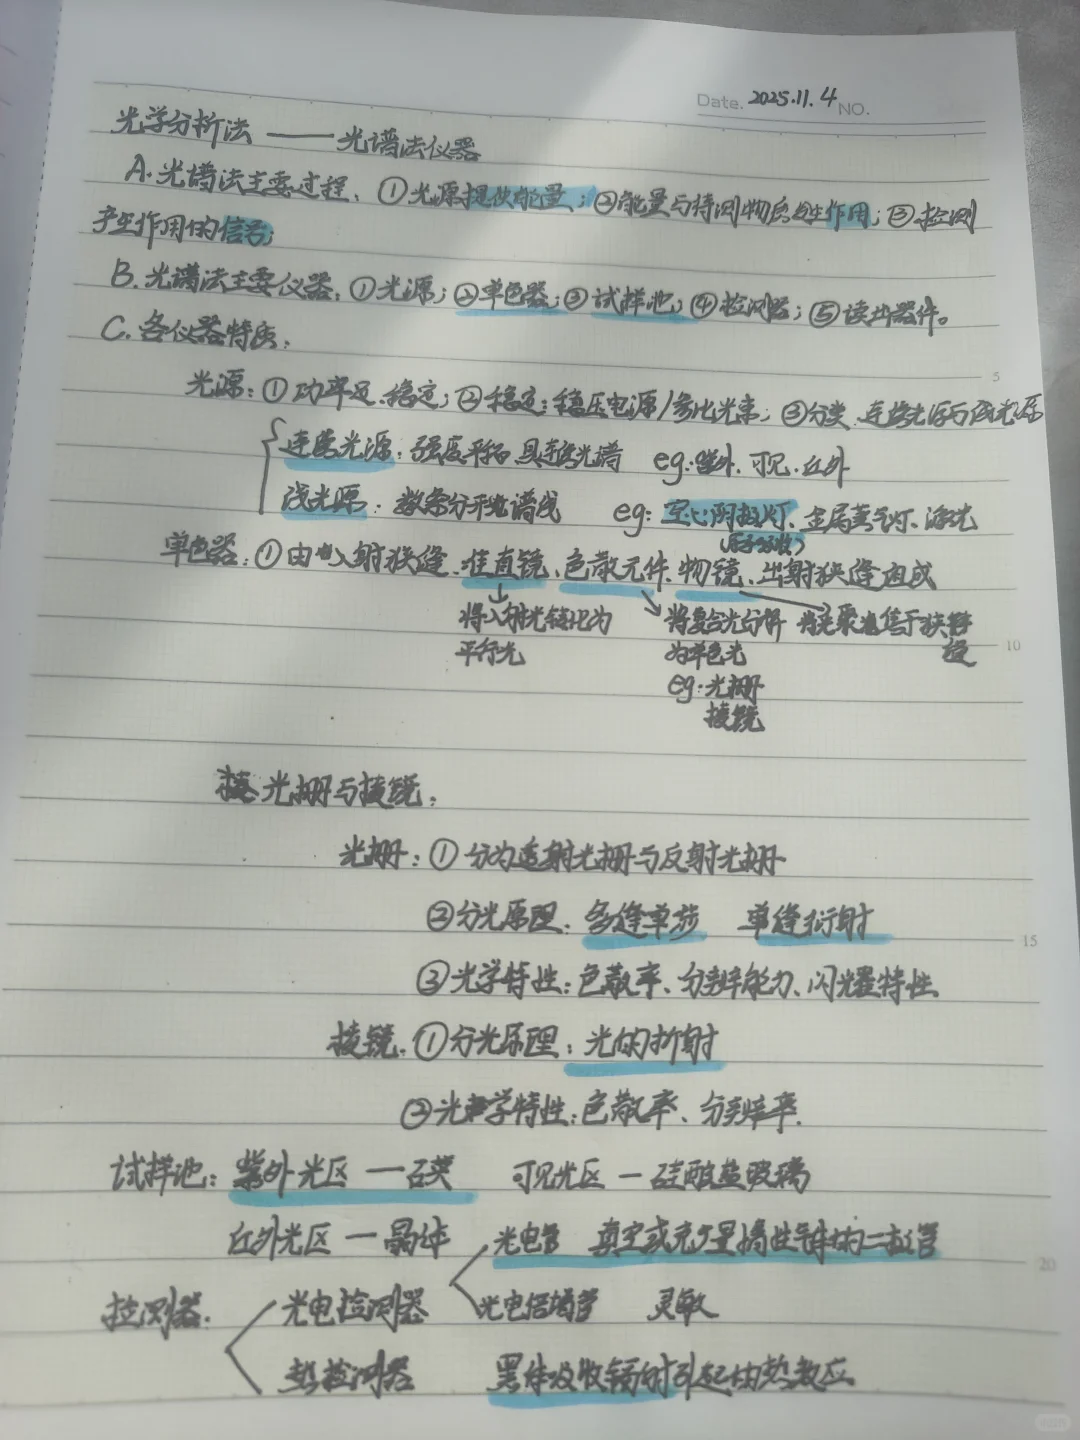 Date. 2025.11.4 NO.
光学分析法 —— 光谱法仪器
A. 光谱法主要过程. ①光源提供能量; ②能量与待测物质发生作用; ③检测
产生作用的信号;
B. 光谱法主要仪器. ①光源; ②单色器; ③试样池; ④检测器; ⑤读出器件。
C. 各仪器特质:
5
光源: ①功率足、稳定; ②稳定: 稳压电源/参比光束; ③分类. 连续光源与线光源
连续光源: 强度平稳 具连续光谱 eg: 紫外、可见、红外
线光源: 数条分开光谱线 eg: 空心阴极灯、金属蒸气灯、激光
(原子吸收)
单色器: ①由入射狭缝、准直镜、色散元件、物镜、出射狭缝组成
将入射光转化为 将复合光分解 将光聚焦于狭缝
10
平行光 为单色光
eg: 光栅
棱镜
光栅与棱镜:
光栅: ①分为透射光栅与反射光栅
②分光原理: 多缝单涉 单缝衍射
15
③光学特性: 色散率、分辨能力、闪耀特性
棱镜. ①分光原理: 光的折射
②光学特性: 色散率、分辨率.
试样池: 紫外光区 — 石英 可见光区 — 硅酸盐玻璃
红外光区 — 晶体 光电管 真空或充少量惰性气体的二极管
20
检测器. 光电检测器 光电倍增管 灵敏
热检测器 黑体吸收辐射引起的热效应